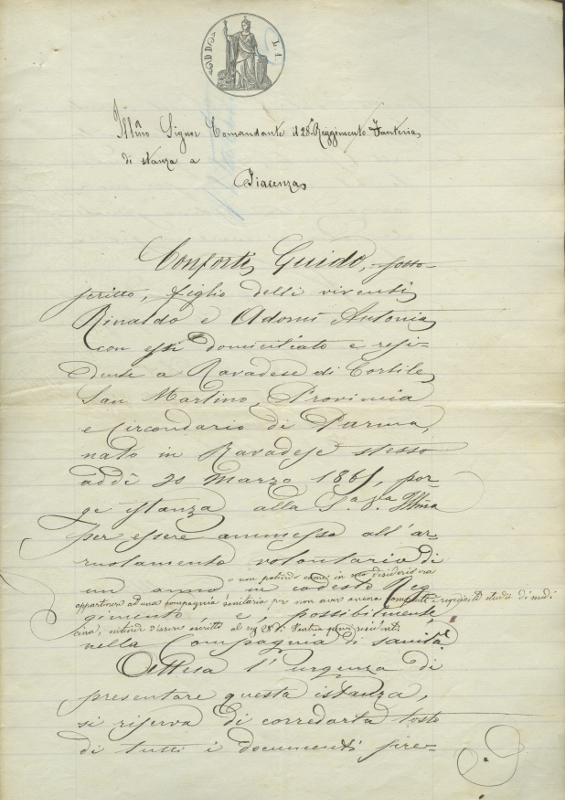 Illmo Signor Comandante il 28° Reggimento Fanteria
di stanza a
Piacenza
Conforti Guido, sotto-
scritto, figlio delli viventi
Rinaldo e Adorni Antonia
con essi domiciliato e resi-
dente a Ravadese di Cortile
San Martino, Provincia
e Circondario di Parma,
nato in Ravadese stesso
addì 30 Marzo 1865, por-
ge istanza alla S.a V.a Illma
per essere ammesso all'ar-
ruolamento volontario di
un anno in codesto Reg-
e non potendo in desiderava
appartenere ad una compagnia di sanità per non aver ancora compiuto i studi di medi
gimento e, possibilmente,
cina, intende d'essere ascritto al 28° di Fanteria
nella Compagnia di sanità.
Attesa l'urgenza di
presentare questa istanza,
si riserva di corredarla tosto
di tutti i documenti pre-